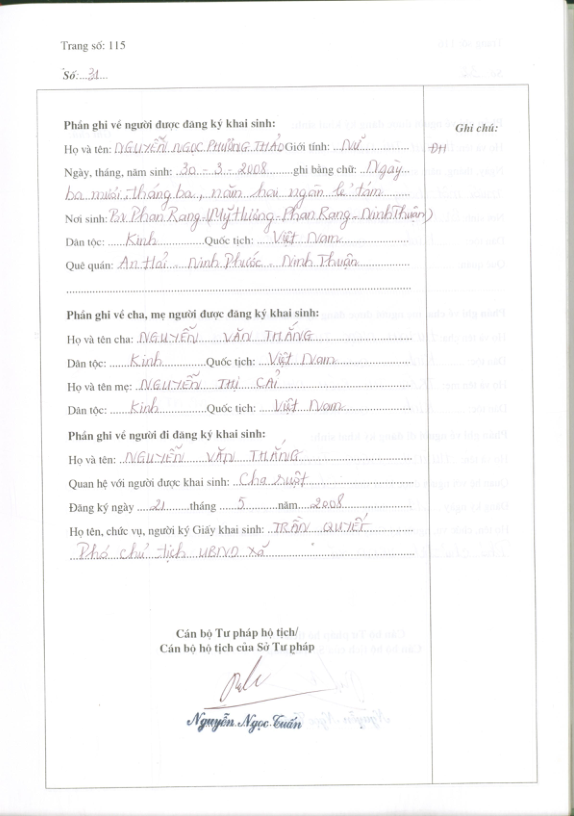 Trang số: 115
Số: 31
Phần ghi về người được đăng ký khai sinh:
Ghi chú:
Họ và tên: NGUYỄN NGỌC PHƯƠNG THẢO Giới tính: Nữ
ĐH
Ngày, tháng, năm sinh: 30 - 3 - 2008 ghi bằng chữ: Ngày
ba mươi, tháng ba, năm hai ngàn lẻ tám
Nơi sinh: B.v Phan Rang (Mỹ Hương - Phan Rang - Ninh Thuận)
Dân tộc: Kinh Quốc tịch: Việt Nam
Quê quán: An Hải - Ninh Phước - Ninh Thuận
Phần ghi về cha, mẹ người được đăng ký khai sinh:
Họ và tên cha: NGUYỄN VĂN THẮNG
Dân tộc: Kinh Quốc tịch: Việt Nam
Họ và tên mẹ: NGUYỄN THỊ CẢI
Dân tộc: Kinh Quốc tịch: Việt Nam
Phần ghi về người đi đăng ký khai sinh:
Họ và tên: NGUYỄN VĂN THẮNG
Quan hệ với người được khai sinh: Cha ruột
Đăng ký ngày 21 tháng 5 năm 2008
Họ tên, chức vụ, người ký Giấy khai sinh: TRẦN QUYẾT
Phó chủ tịch UBND xã
Cán bộ Tư pháp hộ tịch/
Cán bộ hộ tịch của Sở Tư pháp
Nguyễn Ngọc Tuấn